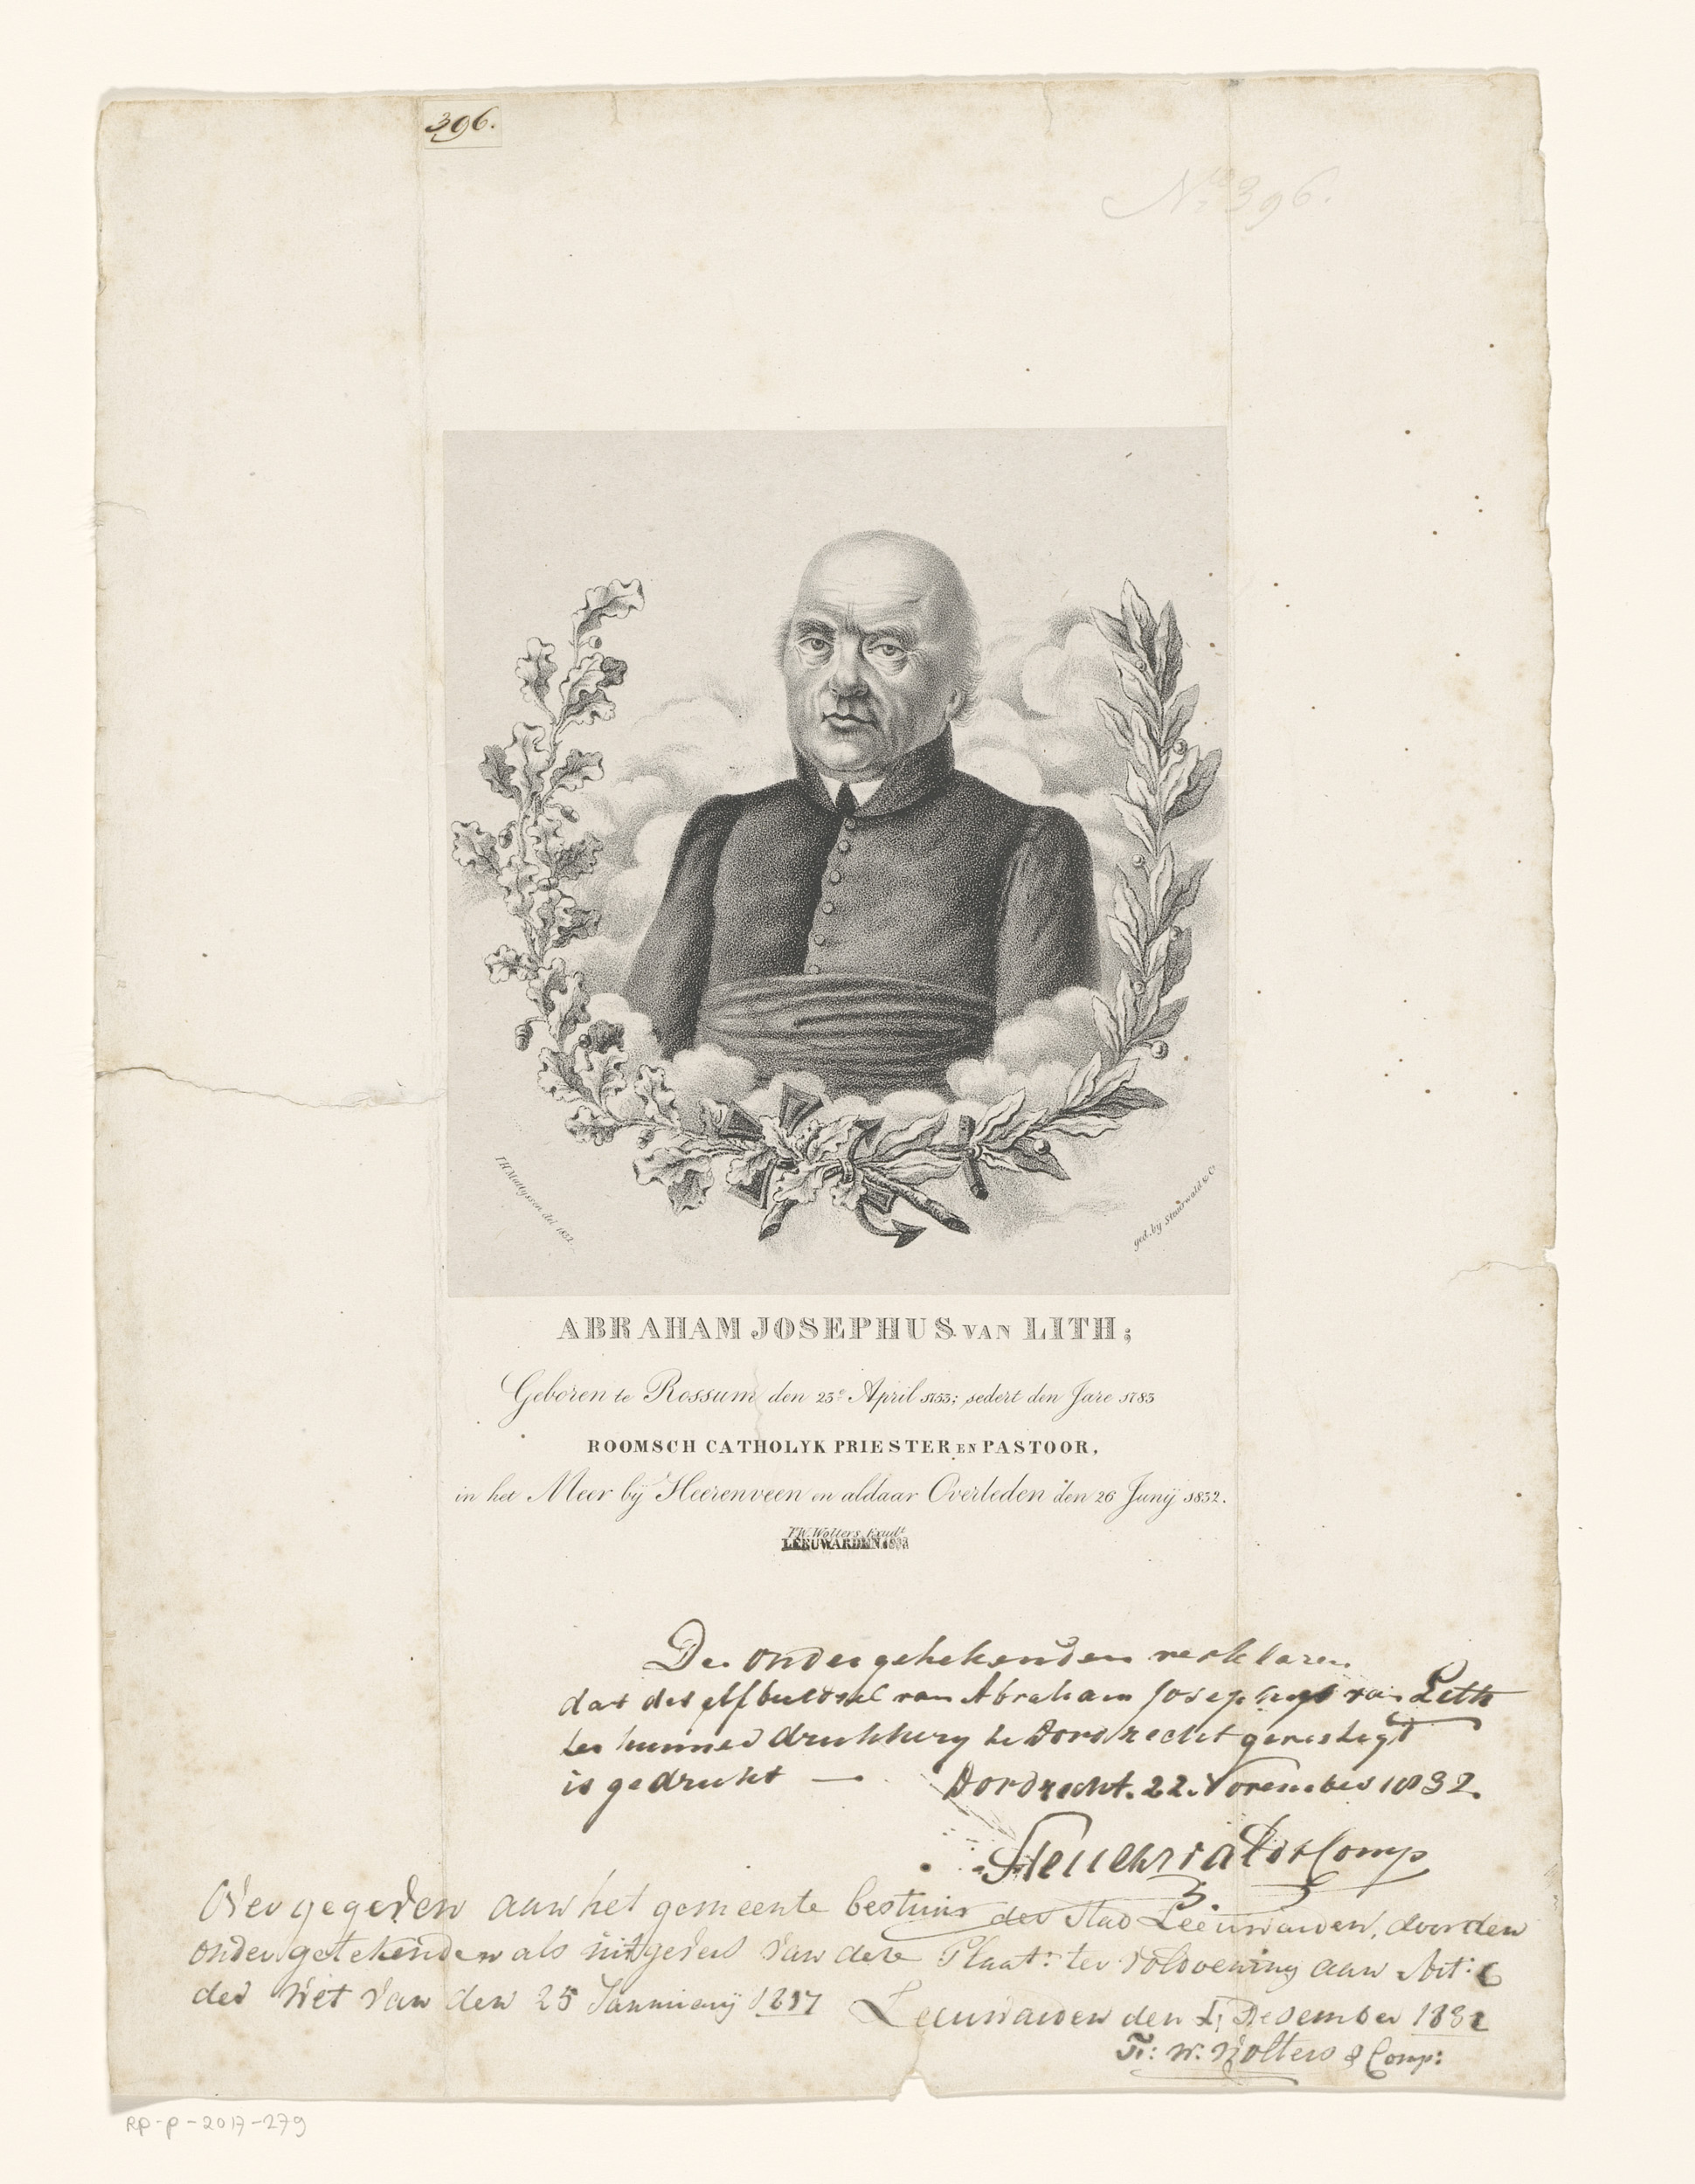 396.
No 396.
ged. by Steuerwald & Co
ABRAHAM JOSEPHUS VAN LITH;
Geboren te Rossum den 23e April 1753; sedert den Jare 1783
ROOMSCH CATHOLYK PRIESTER EN PASTOOR,
in het Meer bij Heerenveen en aldaar Overleden den 26 Junij 1832.
T.W. Wolters Exudt
LEEUWARDEN
De ondergetekenden verklaren
dat van Abraham Josephus van Lith
ter hunner drukkery te Dordrecht
is gedrukt — Dordrecht. 22. November 1832.
Steuerwald & Comp
Overgegeven aan het gemeente bestuur der Stad Leeuwarden, door den
ondergetekende als uitgever van deze Plaat: ter voldoening aan Art: 6
der Wet van den 25 Januarij 1817 Leeuwarden den December 1832
W. Wolters & Comp:
RP-P-2017-279